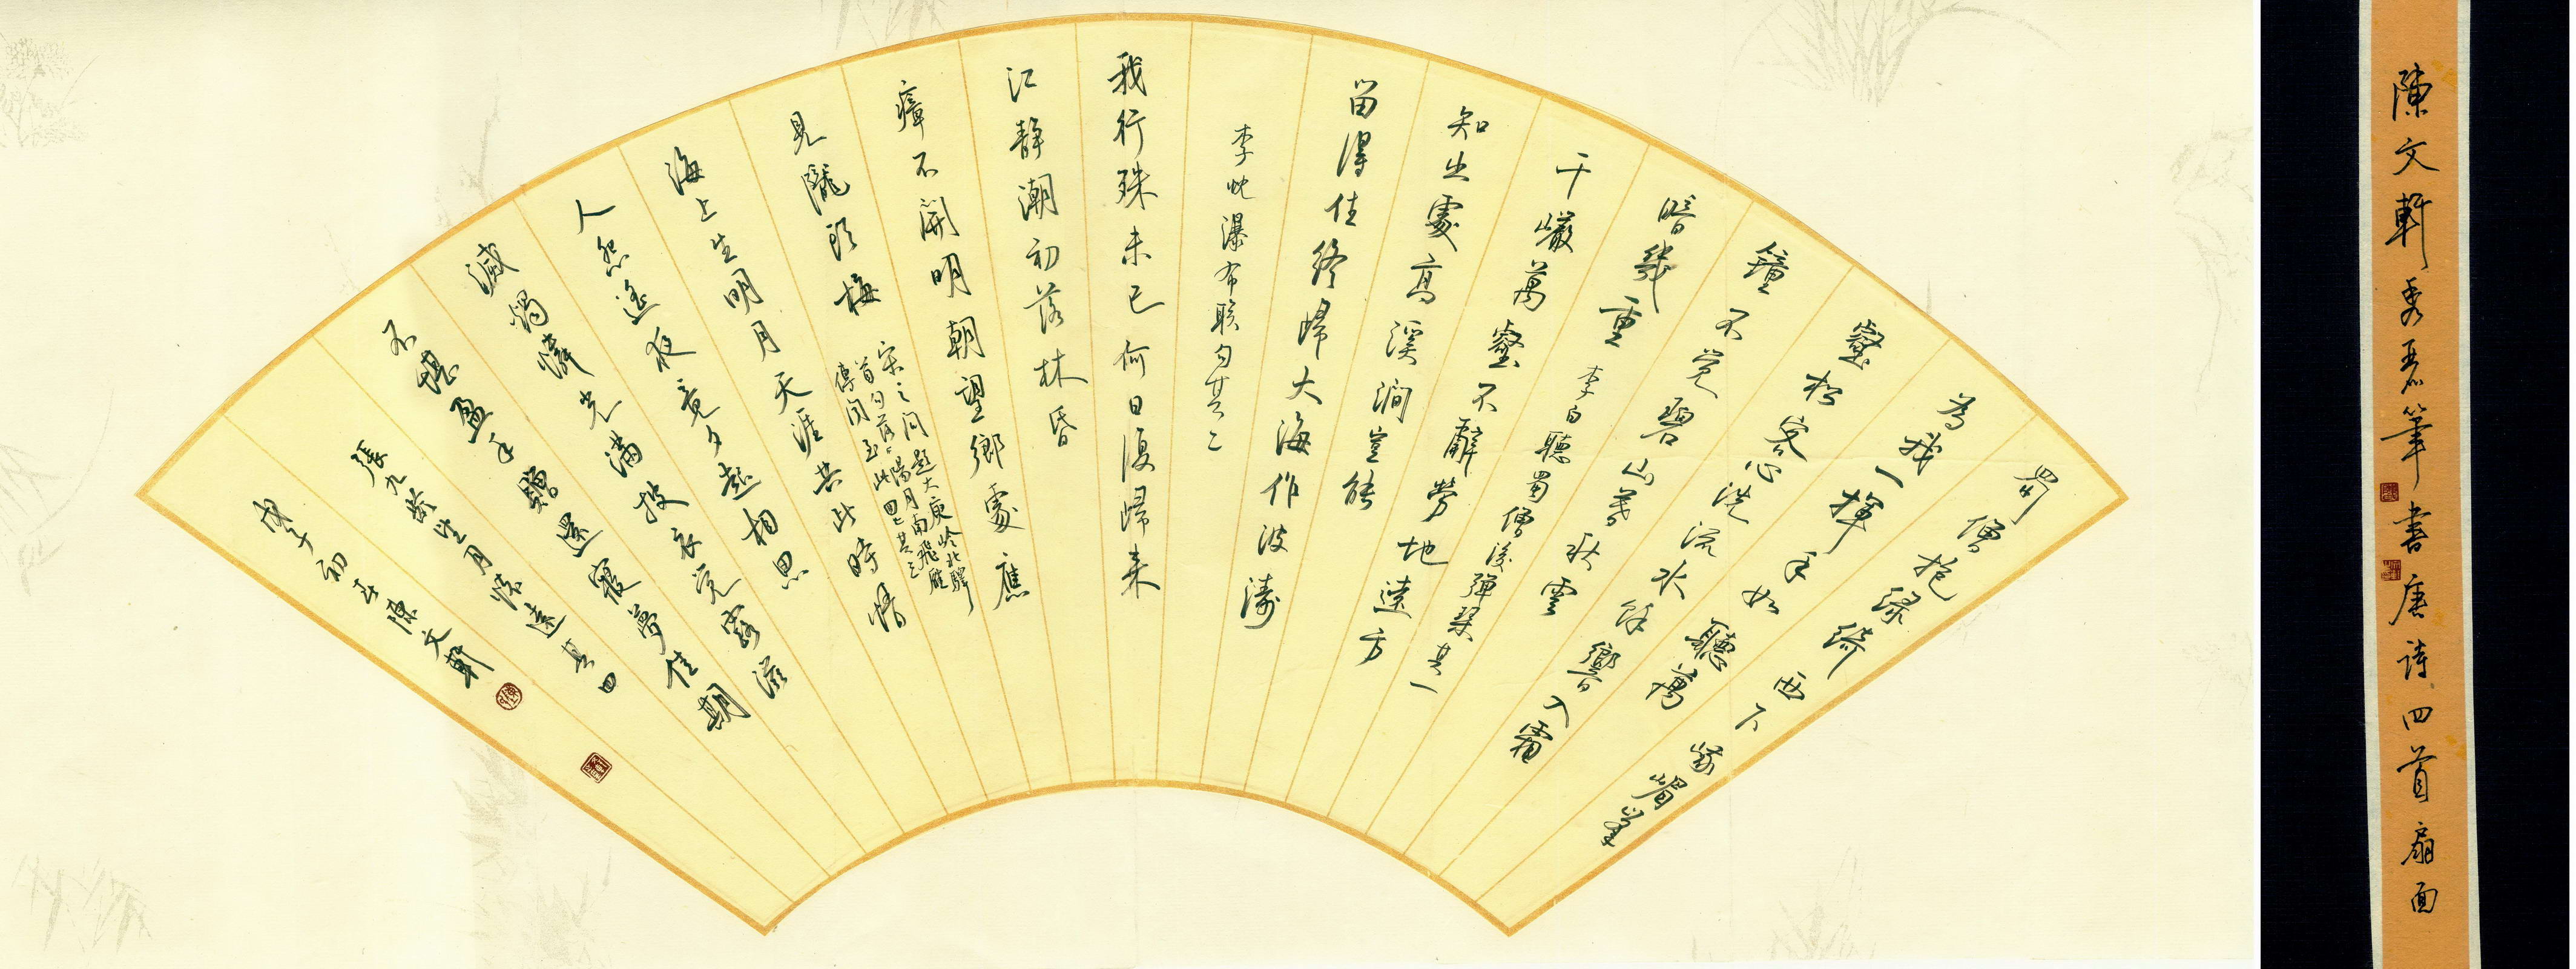 蜀僧抱綠綺西下峨嵋峯
為我一揮手如聽萬
壑松客心洗流水餘響入霜
鐘不覺碧山暮秋雲
暗幾重 李白聽蜀僧浚彈琴其一
千巖萬壑不辭勞地遠方
知出處高溪澗豈能
留得住終歸大海作波濤
李忱瀑布聯句其二
我行殊未已何日復歸来
江靜潮初落林昏
瘴不開明朝望鄉處應
見隴頭梅
宋之問題大庾岭北驛
首句落陽月南飛雁
傳聞至此囬其三
海上生明月天涯共此時情
人怨遙夜竟夕起相思
滅燭憐光滿披衣覺露滋
不堪盈手贈還寢夢佳期
張九齡望月懷遠其四
初五陳文軒
陳文軒秀筆書唐詩四首扇面